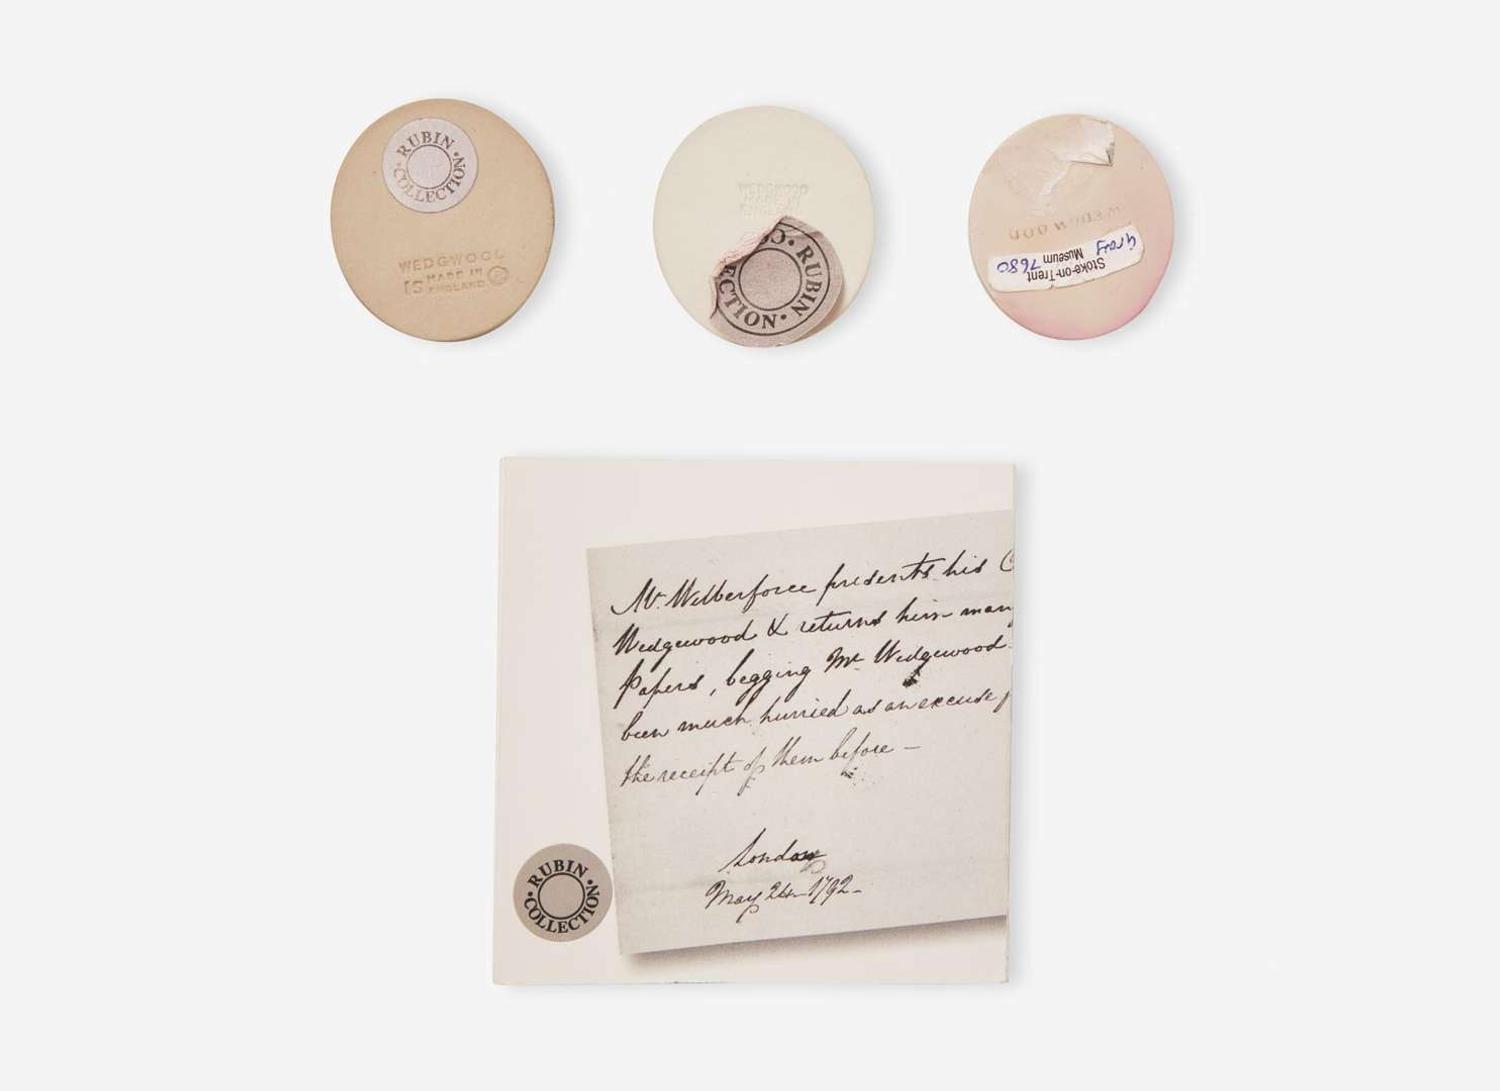 RUBIN • COLLECTION •
WEDGWOOD
MADE IN
ENGLAND
WEDGWOOD
MADE IN
ENGLAND
RUBIN • CO ECTION •
WEDGWOOD
Stoke-on-Trent
Museum
Gray 7680
Mr. Wilberforce presents his C
Wedgewood & returns him man
Papers, begging Mr. Wedgewood
been much hurried as an excuse f
the receipt of them before —
London
May 24 - 1792 -
RUBIN • COLLECTION •